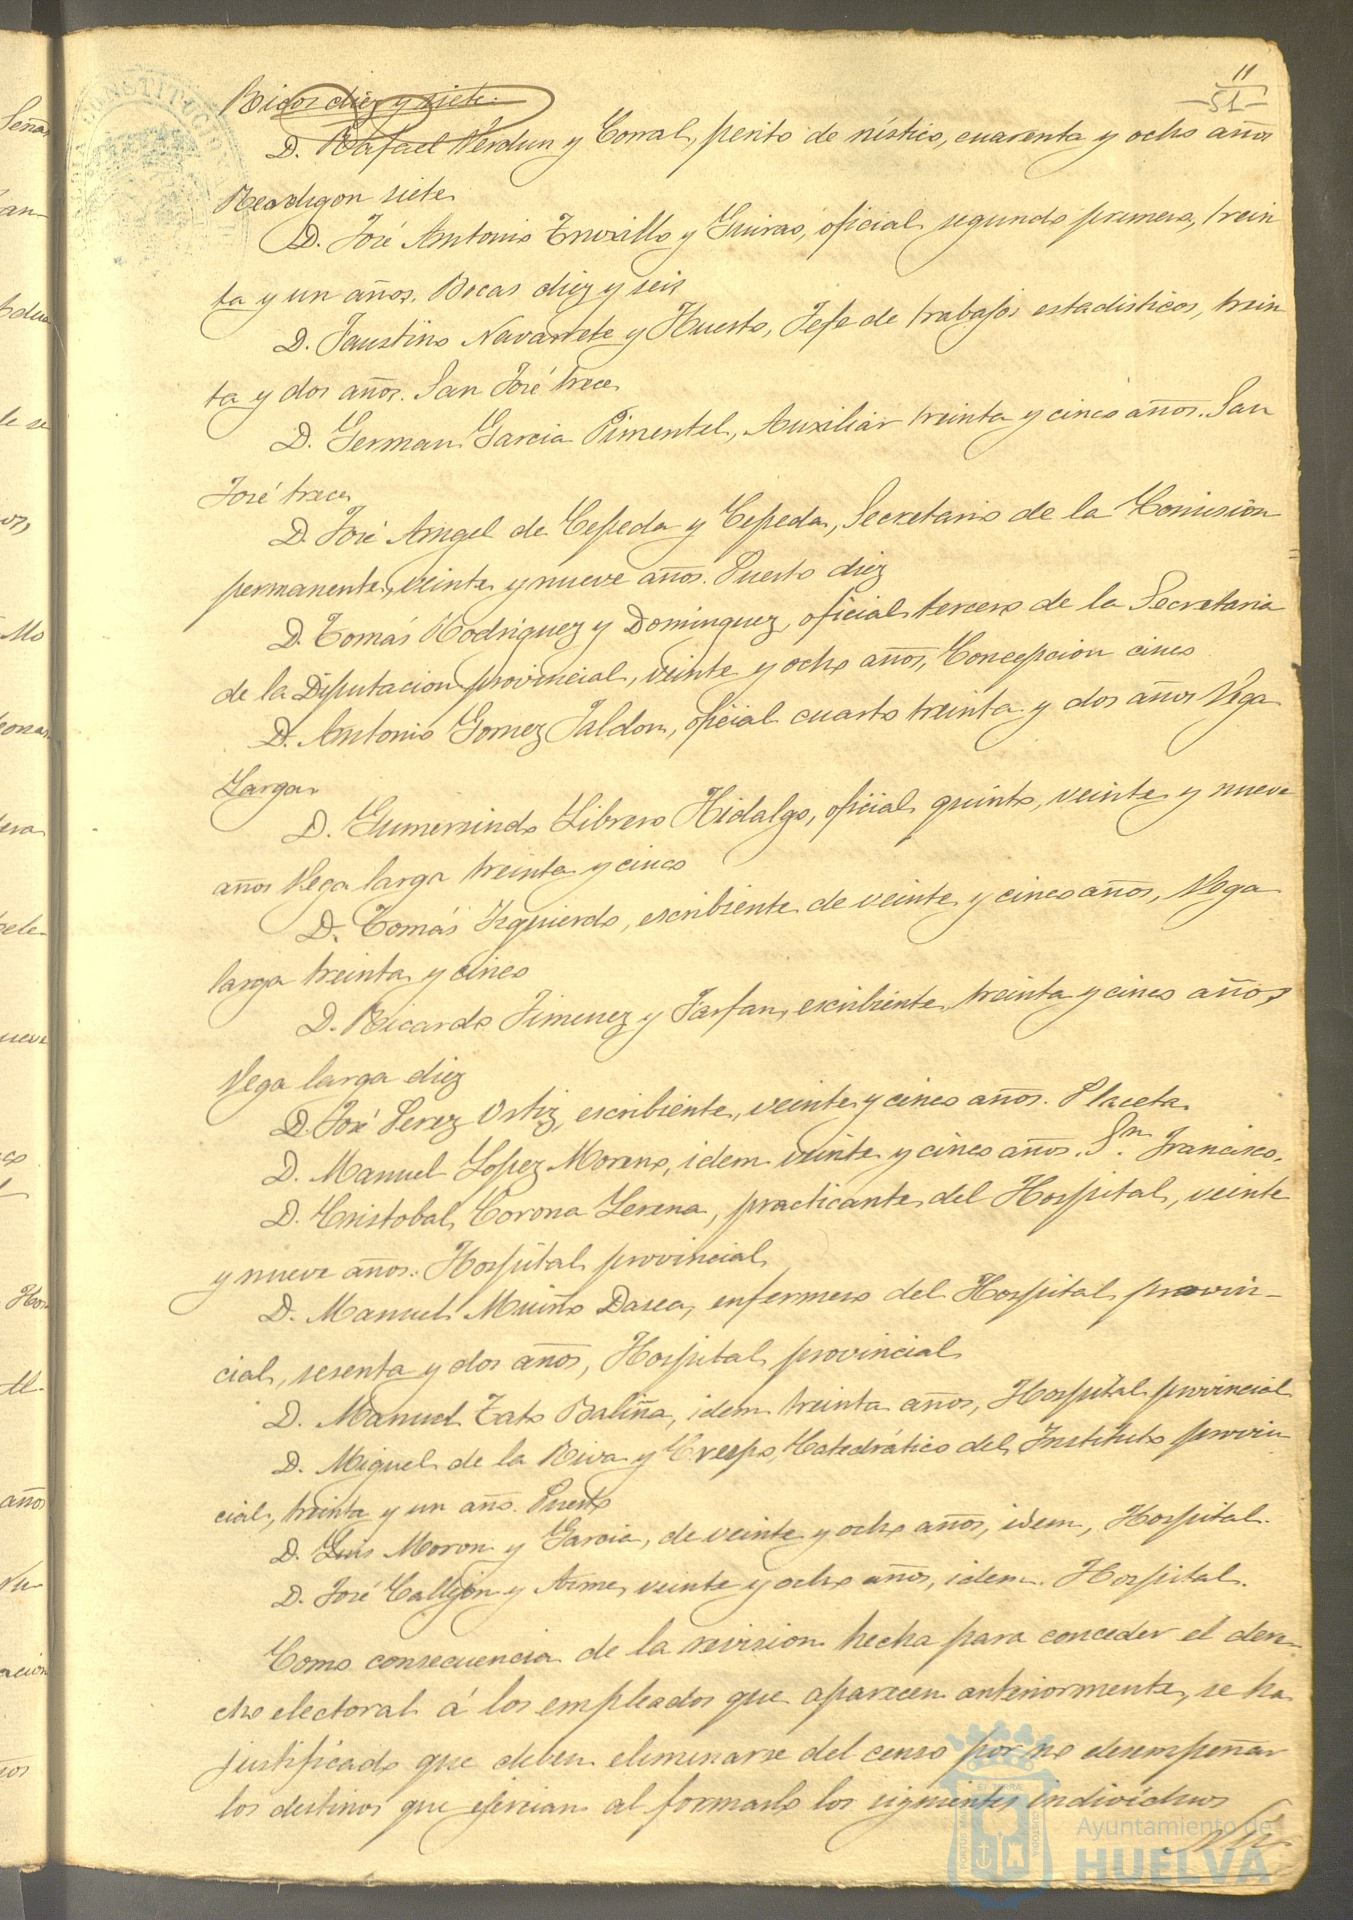 11
-51-
Ricos diez y siete.
D. Rafael Verdun y Corral, perito de rústico, cuarenta y ocho años
siete
D. José Antonio Truxillo y Guirao, oficial segundo primero, trein
ta y un años. Bocas diez y seis
D. Faustino Navarrete y Huerto, Jefe de trabajos estadisticos, trein
ta y dos años. San José trece
D. German Garcia Pimentel, Auxiliar treinta y cinco años. San
José trece
D. José Angel de Cepeda y Cepeda, Secretario de la Comision
permanente, veinte y nueve años. Puerto diez
D. Tomás Rodriguez y Dominguez, oficial tercero de la Secretaria
de la Diputacion provincial, veinte y ocho años, Concepcion cinco
D. Antonio Gomez Jaldon, oficial cuarto treinta y dos años Vega
Larga
D. Gumersindo Librero Hidalgo, oficial quinto, veinte y nueve
años Vega larga treinta y cinco
D. Tomás Izquierdo, escribiente de veinte y cinco años, Vega
larga treinta y cinco
D. Ricardo Jimenez y Farfan, escribiente, treinta y cinco años,
Vega larga diez
D. José Perez Ortiz, escribiente, veinte y cinco años. Placeta
D. Manuel Lopez Moreno, idem veinte y cinco años. Sn. Francisco,
D. Cristobal Corona Lerena, practicante del Hospital, veinte
y nueve años. Hospital provincial
D. Manuel Muiño Dasea, enfermero del Hospital provin-
cial, sesenta y dos años, Hospital provincial
D. Manuel Tato Baliña, idem treinta años, Hospital provincial
D. Miguel de la Riva y Crespo, Catedrático del Instituto provin
cial, treinta y un año. Puerto
D. Luis Moron y Garcia, de veinte y ocho años, idem, Hospital.
D. José Callejon y veinte y ocho años, idem. Hospital.
Como consecuencia de la revision hecha para conceder el dere-
cho electoral á los empleados que aparecen anteriormente, se ha
justificado que deben eliminarse del censo por no desempeñar
los destinos que ejercian al formarlo los siguientes individuos
Ayuntamiento de
HUELVA